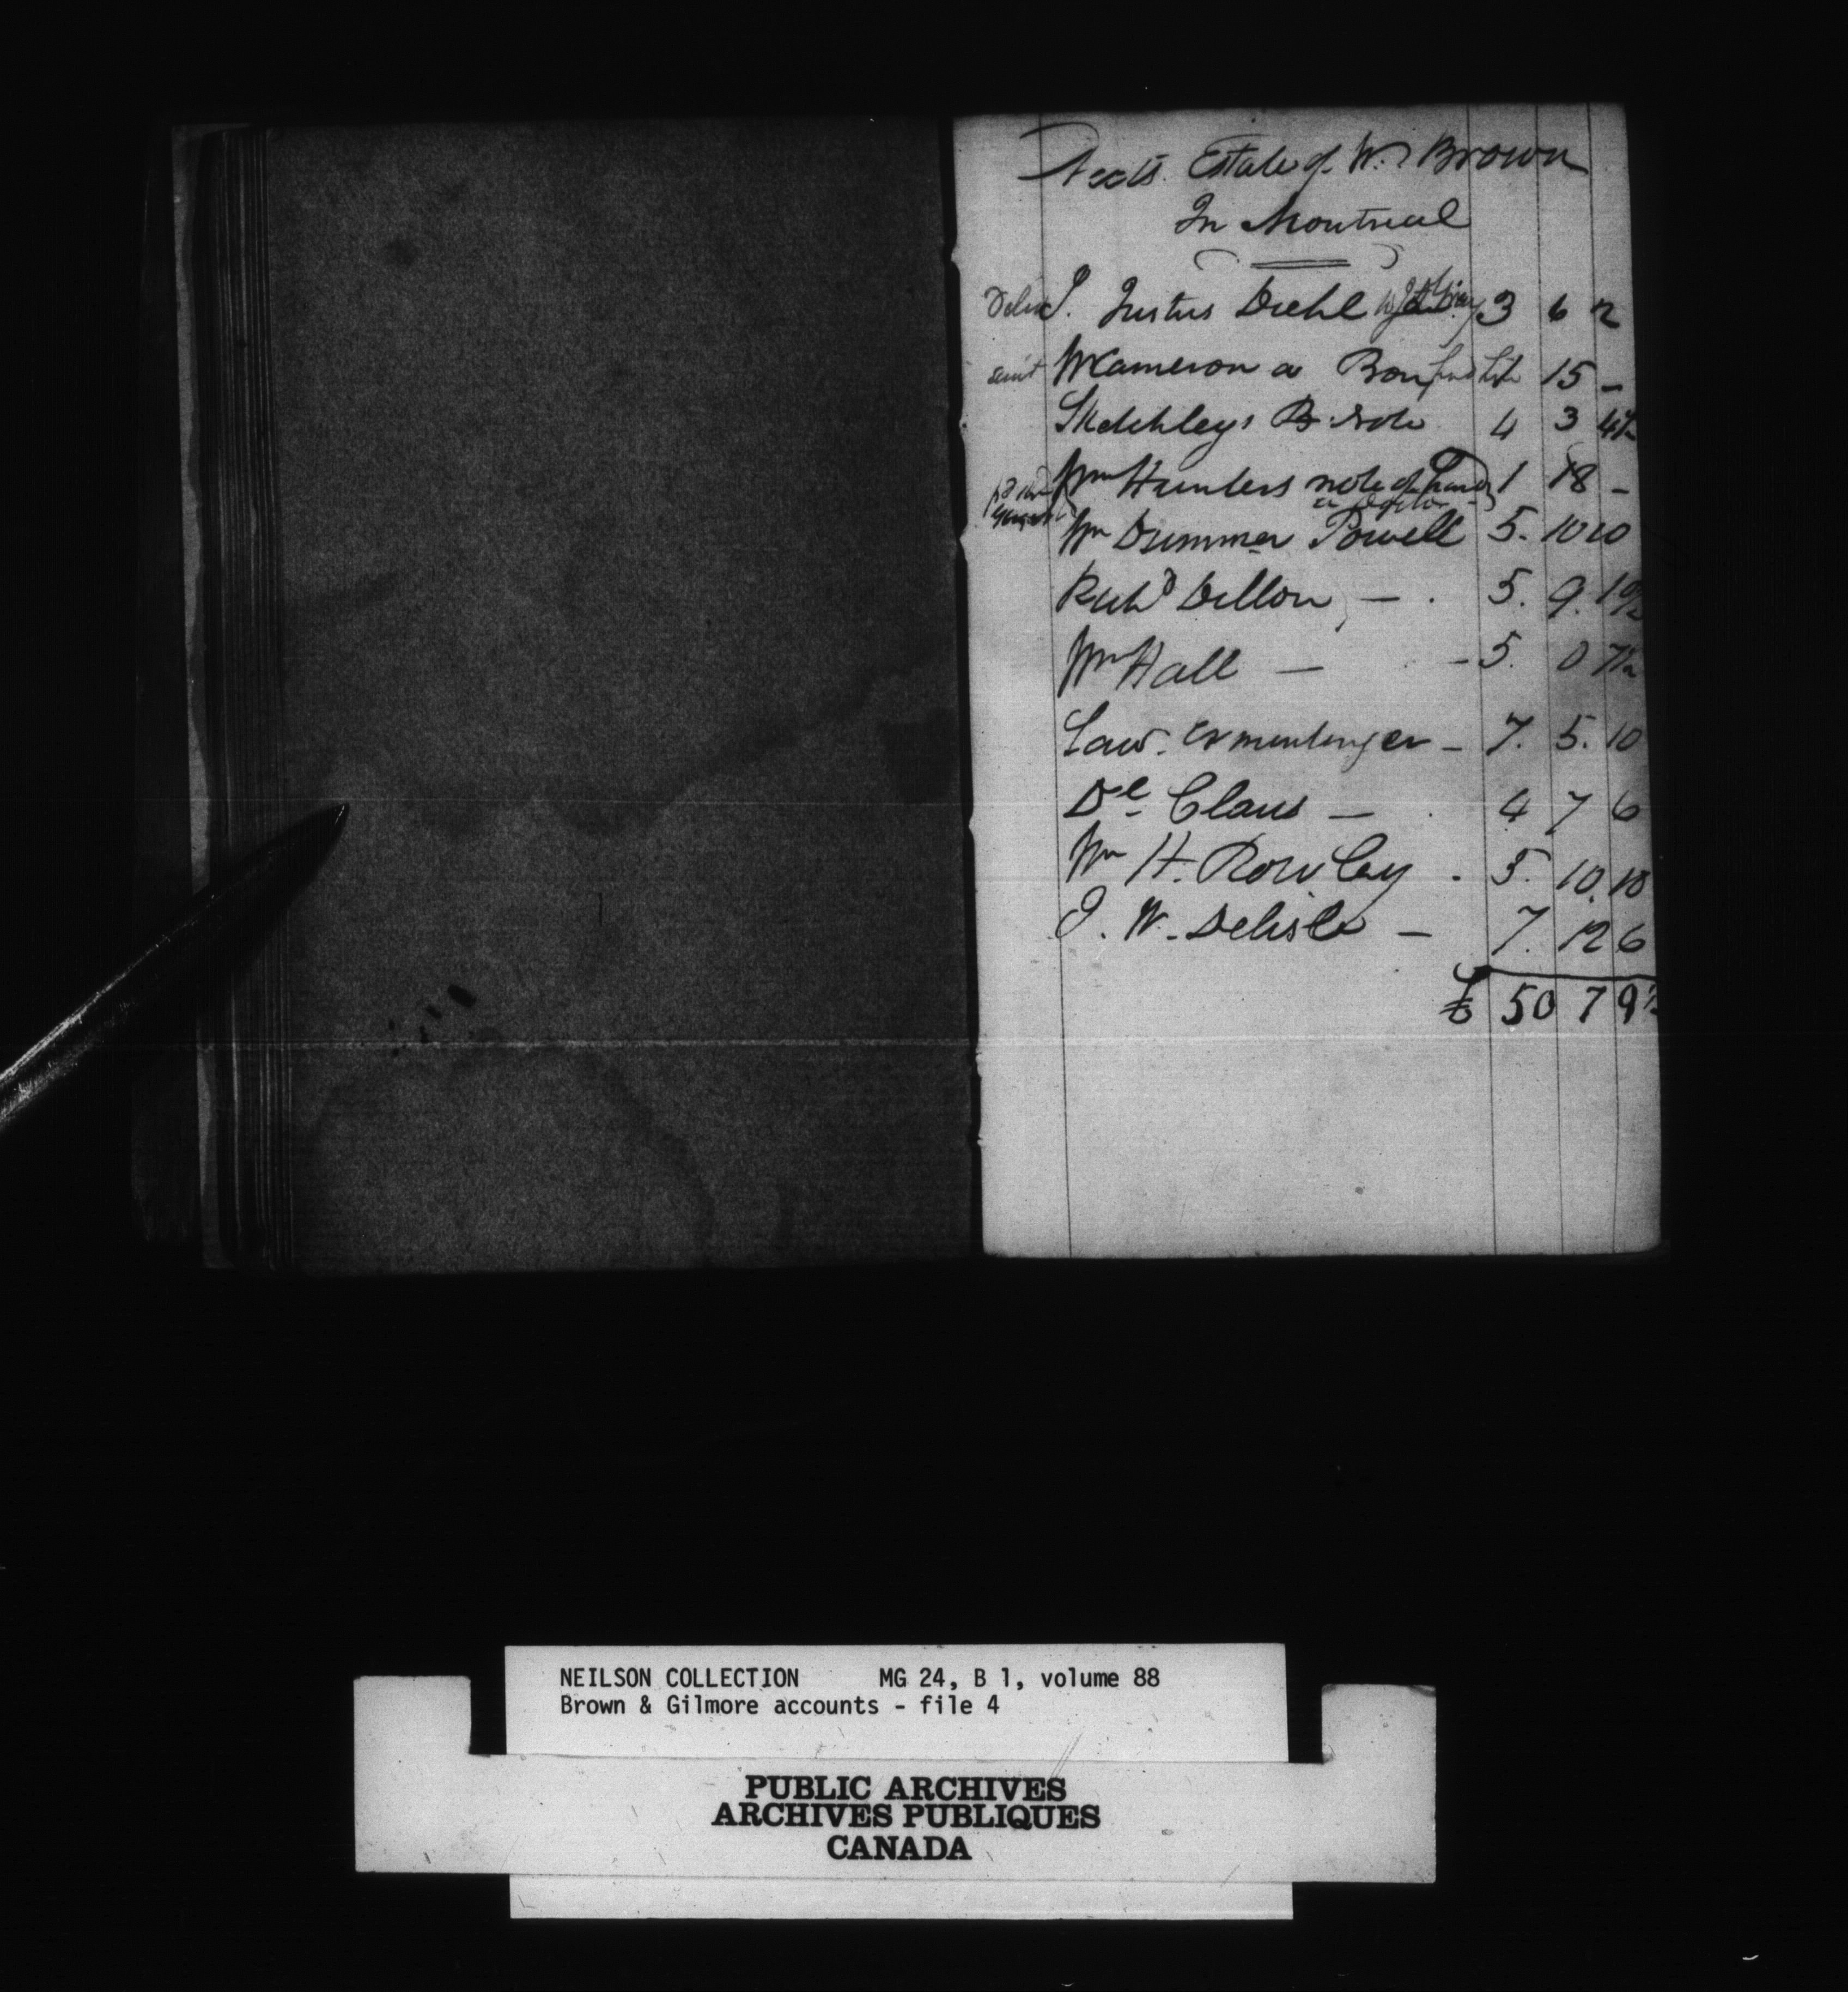 Accts. Estate of W. Brown
In Montreal
J. Justus Diehl 3 6 2
sent W Cameron a Bon 15 -
Sketchleys B. note 4 3 4½
Wm Hunters note of hand 1 18 -
Wm Dummer Powell 5. 10 10
Richd Dillon - . 5. 9. 10½
Wm Hall - - 5. 0 7½
Law. Ermentinger - 7. 5. 10
Dl Claus - 4 7 6
Wm H. Rowley . 5. 10. 10
J. W. Delisle - 7. 12 6
£ 50 7 9½
NEILSON COLLECTION MG 24, B 1, volume 88
Brown & Gilmore accounts - file 4
PUBLIC ARCHIVES
ARCHIVES PUBLIQUES
CANADA